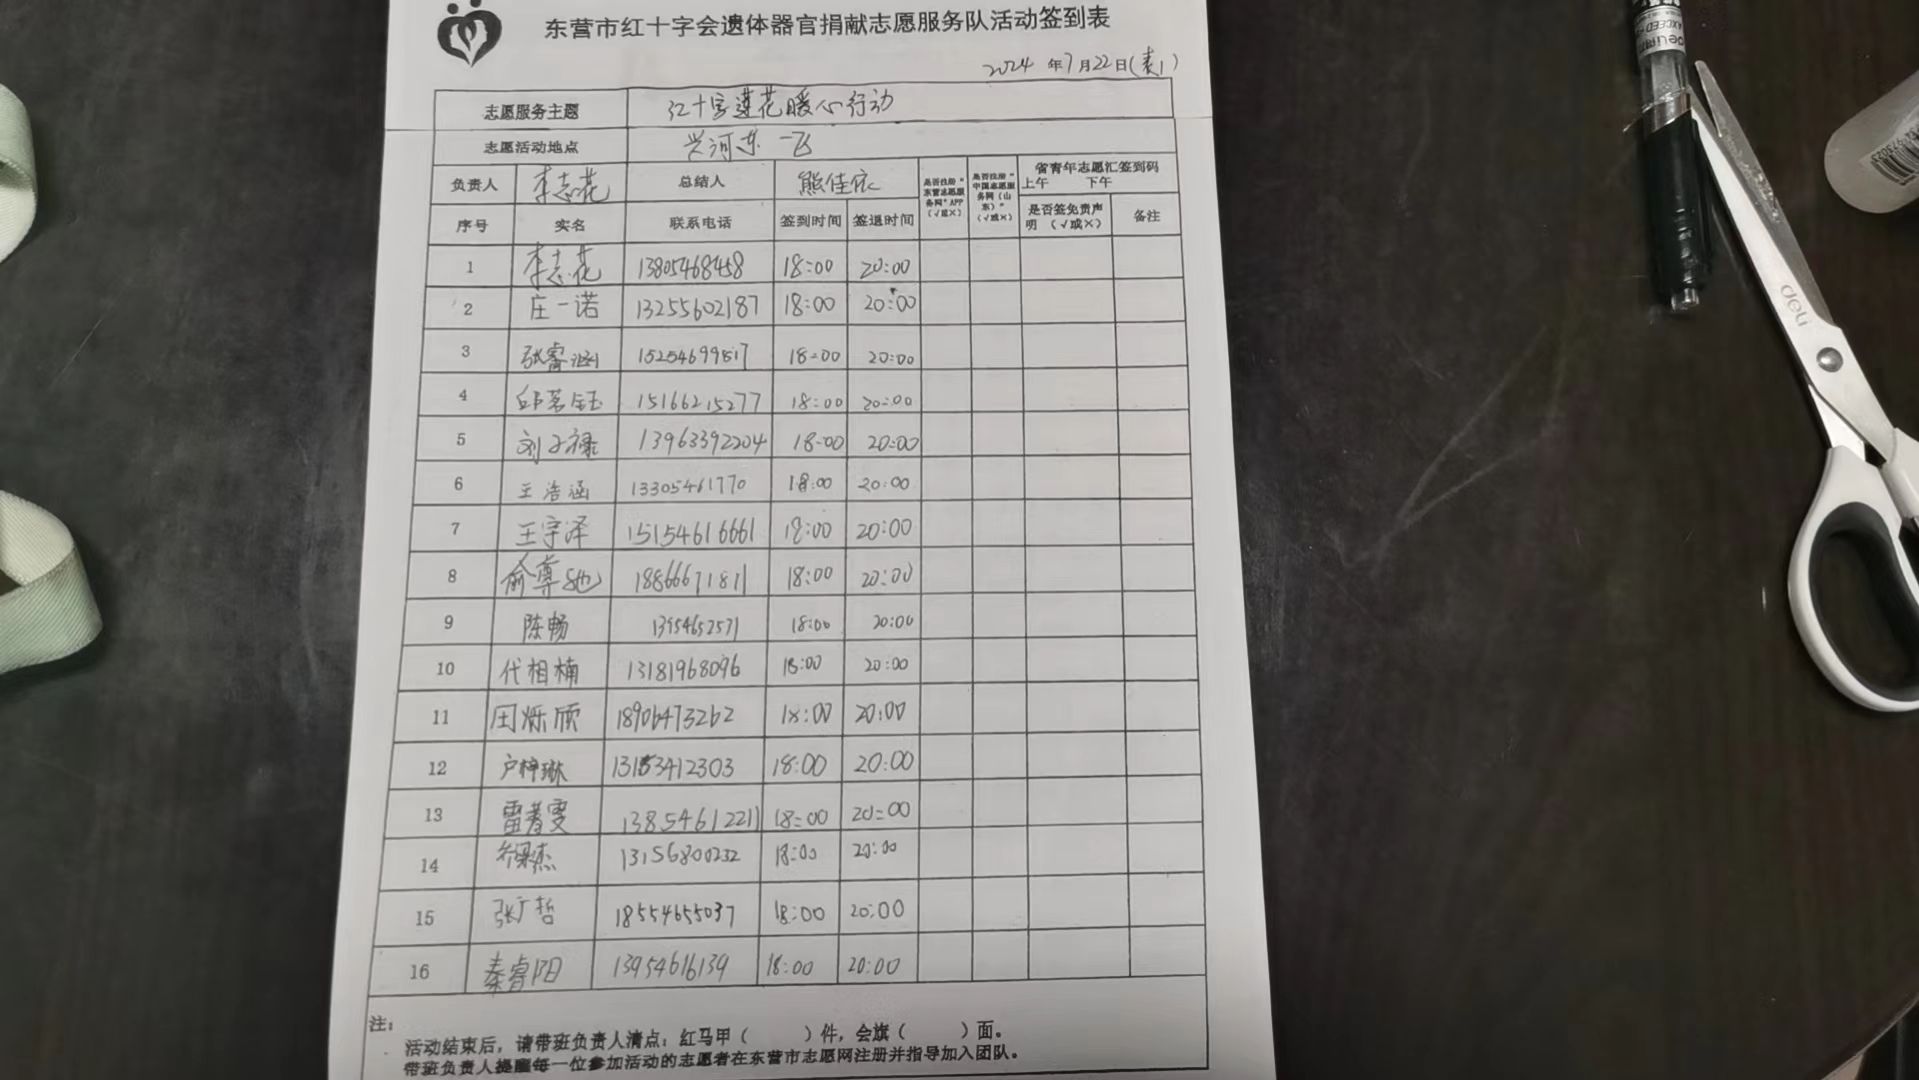 东营市红十字会遗体器官捐献志愿服务队活动签到表
2024 年7月22日(表1)
志愿服务主题 红十字莲花暖心行动
志愿活动地点 兴河东一飞
负责人 李志花 总结人 熊佳依 是否注册“东营志愿服务网”APP（√或×） 是否注册“中国志愿服务网（山东）”（√或×） 省青年志愿汇签到码 上午 下午
序号 实名 联系电话 签到时间 签退时间 是否签免责声明（√或×） 备注
1 李志花 13805468458 18:00 20:00
2 庄一诺 13255602187 18:00 20:00
3 张睿涵 15254699817 18:00 20:00
4 邱茗钰 15166215277 18:00 20:00
5 刘子禄 13963392204 18:00 20:00
6 王浩涵 13305461770 18:00 20:00
7 王宇泽 15154616661 18:00 20:00
8 俞尊驰 18866671811 18:00 20:00
9 陈畅 13954652571 18:00 20:00
10 代相楠 13181968096 18:00 20:00
11 田烁颀 18906473262 18:00 20:00
12 卢梓琳 13153412303 18:00 20:00
13 雷 雯 13854612211 18:00 20:00
14 杰 13156800232 18:00 20:00
15 张广哲 18554655037 18:00 20:00
16 秦睿阳 13954616139 18:00 20:00
注：
活动结束后，请带班负责人清点：红马甲（ ）件，会旗（ ）面。
带班负责人提醒每一位参加活动的志愿者在东营市志愿网注册并指导加入团队。
deli